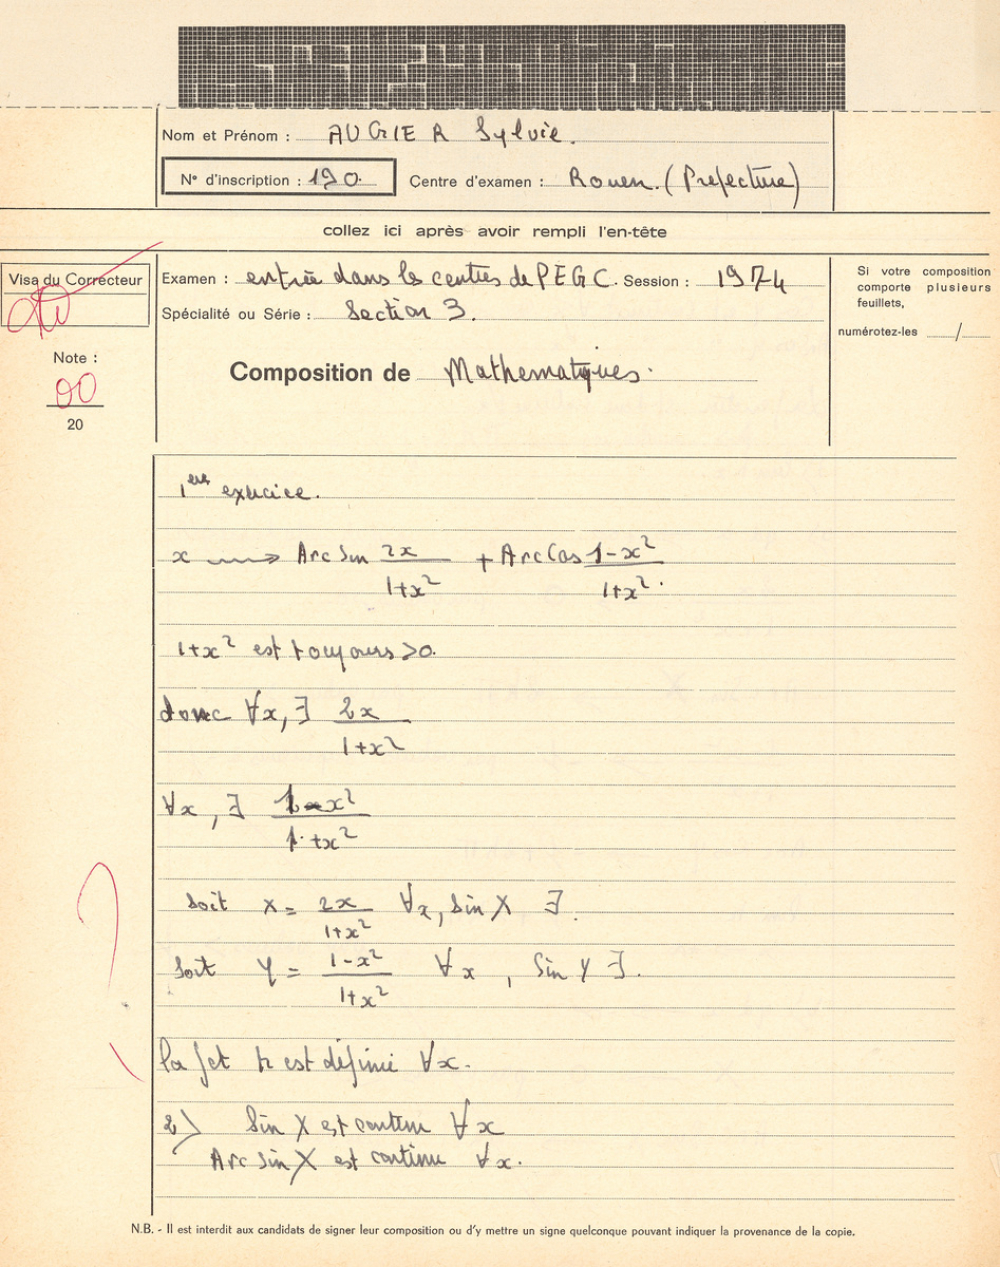 Nom et Prénom : AUGIER Sylvie.
N° d'inscription : 190. Centre d'examen : Rouen. (Prefecture)
collez ici après avoir rempli l'en-tête
Visa du Correcteur
Examen : entrée dans les centres de PEGC. Session : 1974
Spécialité ou Série : Section 3.
Si votre composition
comporte plusieurs
feuillets,
numérotez-les /
Note :
00
20
Composition de Mathematiques.
1ere exercice.
x ⟿ Arc Sin 2x/(1+x²) + Arc Cos (1-x²)/(1+x²).
1+x² est toujours >0.
donc ∀x, ∃ 2x/(1+x²)
∀x, ∃ (1-x²)/(1+x²)
Soit X = 2x/(1+x²) ∀x, sin X ∃.
Soit Y = (1-x²)/(1+x²) ∀x, Sin Y ∃.
la fct h est définie ∀x.
2) Sin X est continu ∀x
Arc sin X est continu ∀x.
N.B. - Il est interdit aux candidats de signer leur composition ou d'y mettre un signe quelconque pouvant indiquer la provenance de la copie.